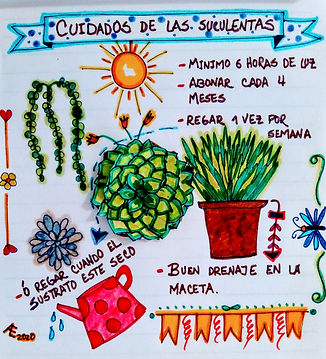 CUIDADOS DE LAS SUCULENTAS
- MINIMO 6 HORAS DE LUZ
- ABONAR CADA 4
MESES
- REGAR 1 VEZ POR
SEMANA
- Ó REGAR CUANDO EL
SUSTRATO ESTE SECO
- BUEN DRENAJE EN LA
MACETA.
Æ 2020